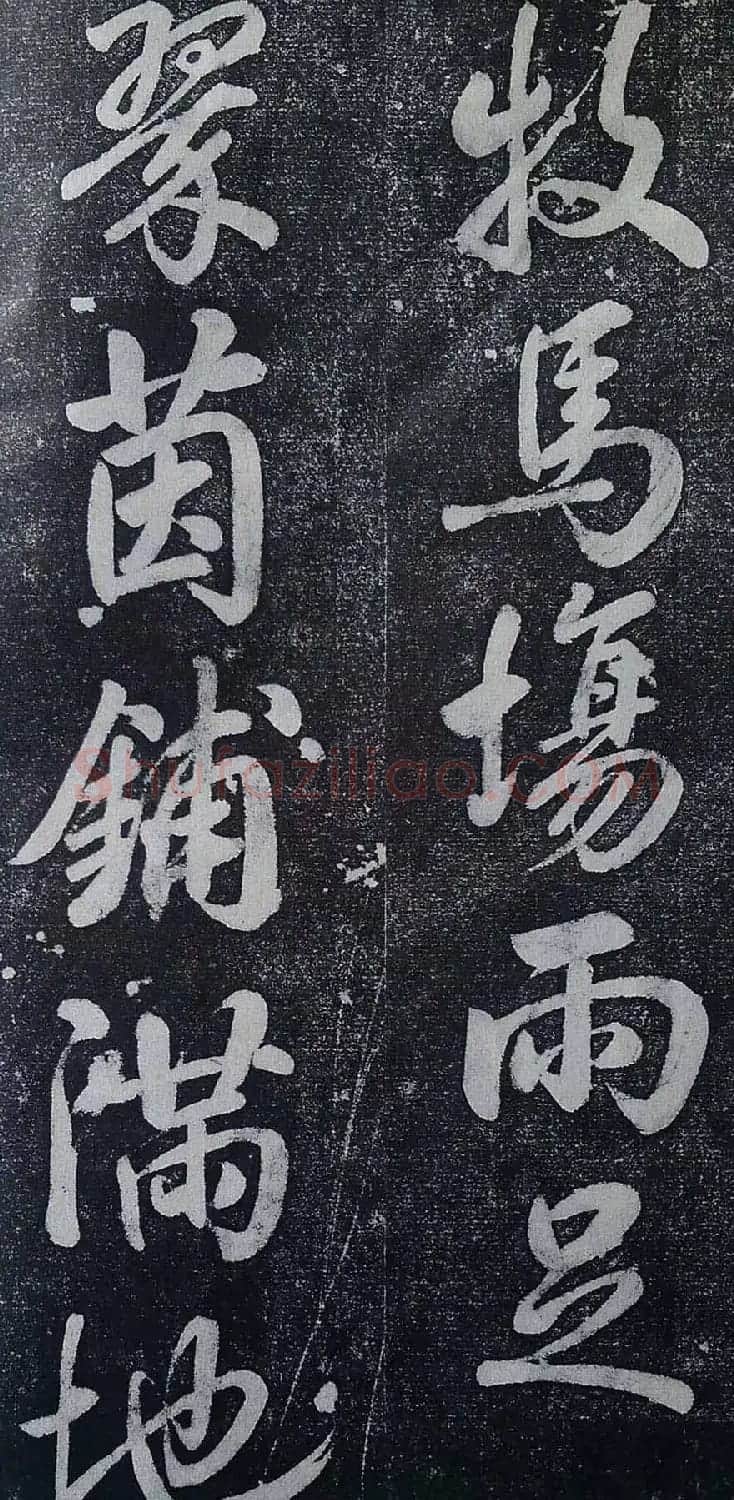 牧馬場雨足
翠茵鋪滿地
Shufaziliao.COM